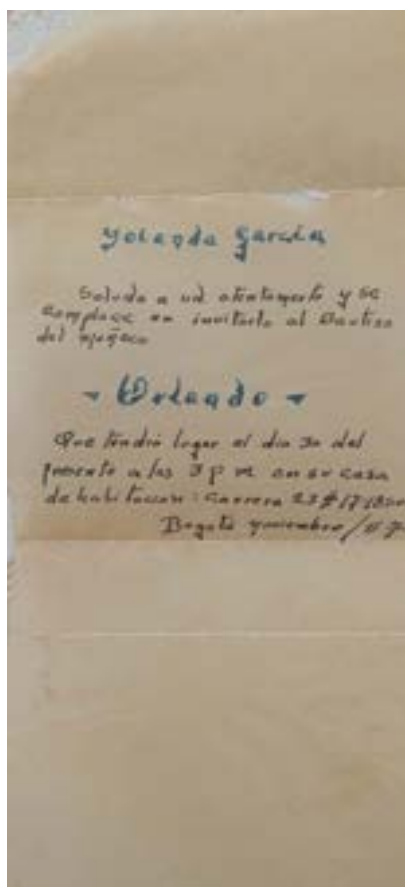 Yolanda García
Saluda a ud. atentamente y se
complace en invitarlo al Bautizo
del muñeco
- Orlando -
Que tendrá lugar el dia 30 del
presente a las 3 p m en su casa
de habitacion: Carrera 23 #
Bogotá noviembre /